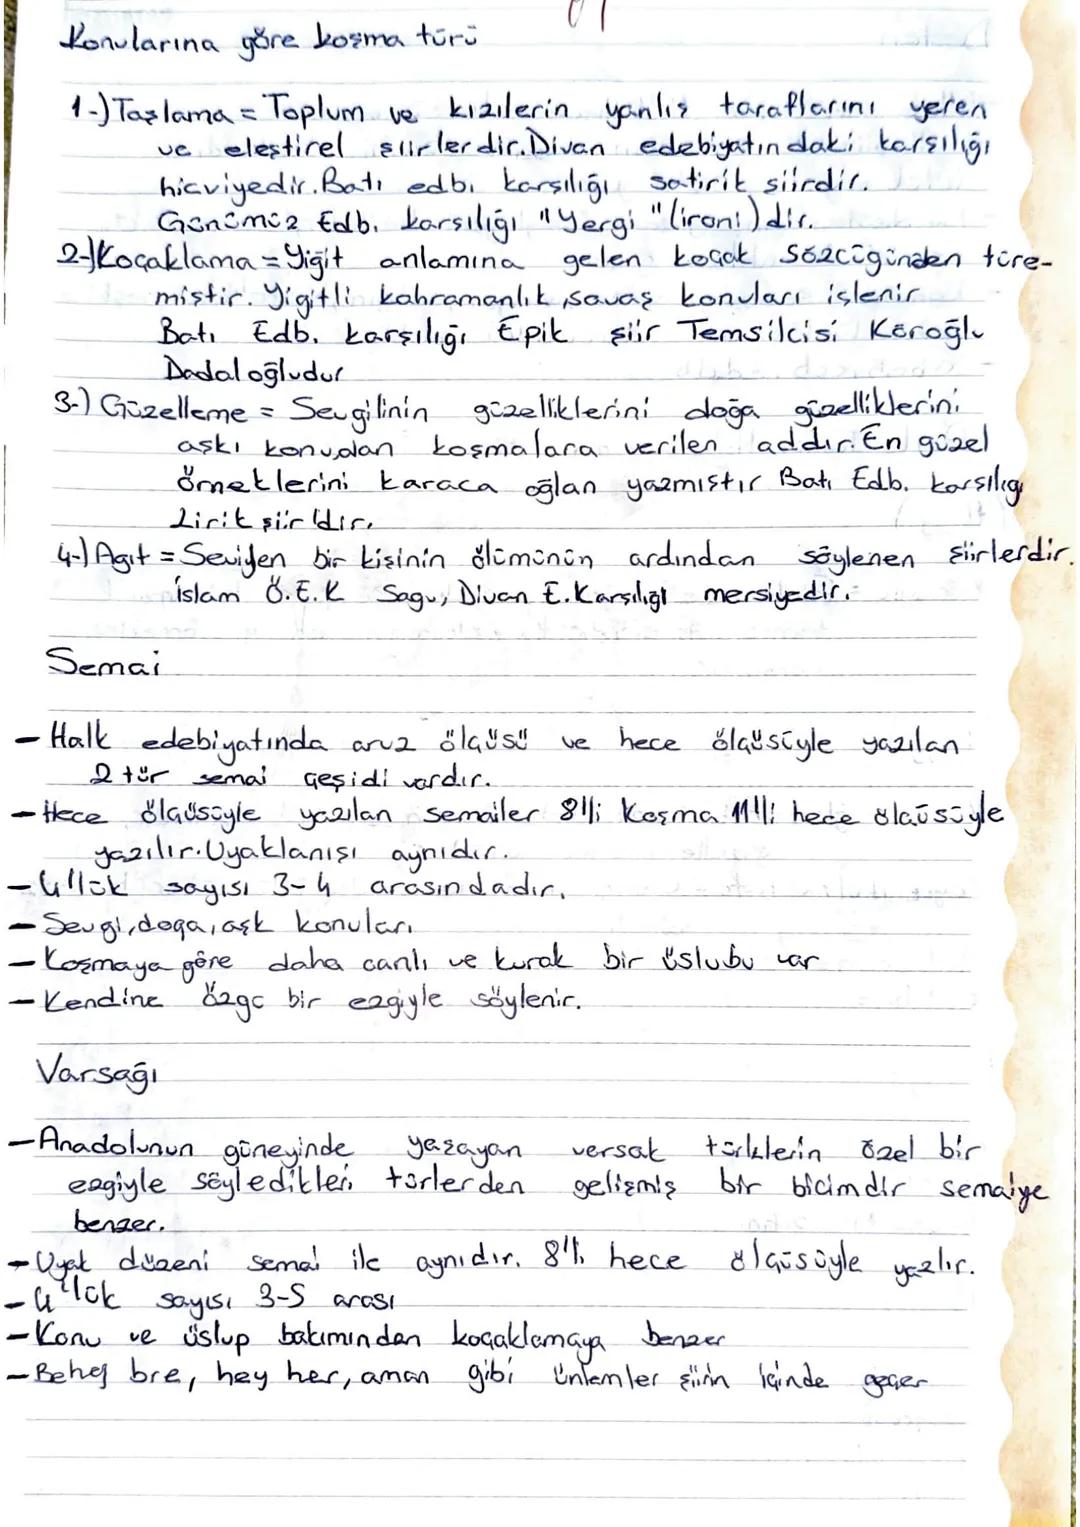 Konularına göre koşma türü
1-) Taşlama = Toplum ve kızılerin yanlış taraflarını yeren
ve eleştirel şiirlerdir. Divan edebiyatındaki karşılığı
hicviyedir. Batı edb. karşılığı satirik şiirdir.
Günümüz Edb. karşılığı "Yergi" (ironi) dir.
2-) Koçaklama = Yiğit anlamına gelen koçak sözcüğünden türe-
miştir. Yigitli kahramanlık, savaş konuları işlenir
Batı Edb. karşılığı Epik şiir Temsilcisi Köroğlu
Dadaloğludur
3-) Güzelleme = Sevgilinin güzelliklerini doğa güzelliklerini
aşkı konudan koşmalara verilen addır. En güzel
örneklerini karaca oğlan yazmıştır Batı Edb. karşılığı
Lirik şiirldir.
4-) Agıt = Sevilen bir kişinin ölümünün ardından söylenen şiirlerdir.
İslam Ö.E.K Sagu, Divan E. Karşılığı mersiyedir.
Semai
- Halk edebiyatında aruz ölçüsü ve hece ölçüsüyle yazılan
2 tür semai çeşidi vardır.
- Hece ölçüsüyle yazılan semailer 8'li Koşma 11'li hece ölçüsüyle
yazılır. Uyaklanışı aynıdır.
- 4'lük sayısı 3-4 arasındadır.
- Sevgi, doga, aşk konuları
- Koşmaya göre daha canlı ve kurak bir üslubu var
- Kendine özgü bir ezgiyle söylenir.
Varsağı
- Anadolunun güneyinde yaşayan versak türklerin özel bir
ezgiyle söyledikleri türlerden gelişmiş bir bicimdir semaiye
benzer.
- Uyak düzeni semai ile aynıdır. 8'li hece ölçüsüyle yazlır.
- 4'lük sayısı 3-5 arası
- Konu ve üslup bakımından koçaklamaya benzer
- Behey bre, hey her, aman gibi ünlemler şiirin içinde geçer